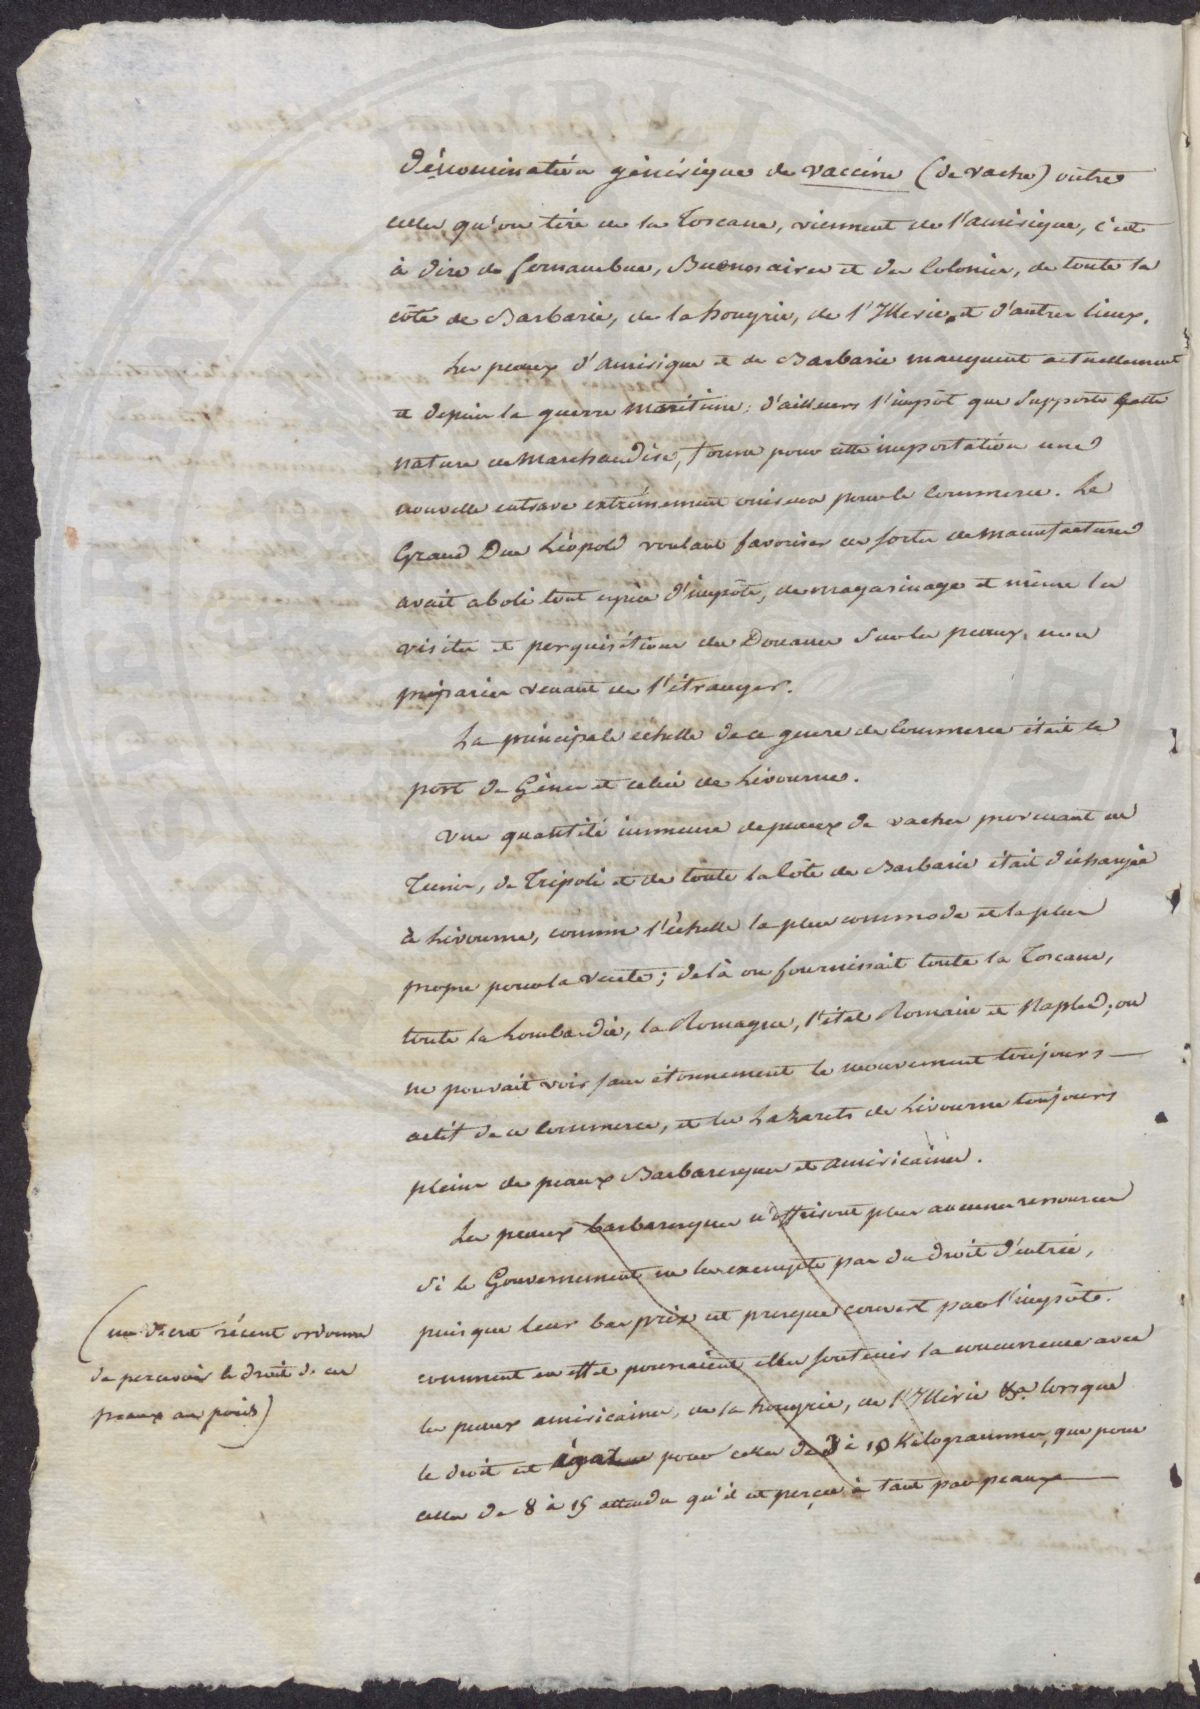 dénomination générique de vaccine (de vache) outre
celles qu'on tire de la Toscane, viennent de l'amérique, c'est
à dire de fernambuc, Buenos aires et des Colonies, de toute la
côte de Barbarie, de la hongrie, de l'Illirie et d'autres lieux.
Les peaux d'amérique et de Barbarie manquent actuellement
et depuis la guerre maritime; d'ailleurs l'impôt que supporte cette
nature de marchandise, forme pour cette importation une
nouvelle entrave extrêmement onéreuse pour le Commerce. Le
Grand Duc Léopold voulant favoriser ces sortes de manufactures
avait aboli tout espèce d'impôts, de magasinage et même les
visites et perquisitions des Douanes sur les peaux, non
préparées venant de l'étranger.
La principale echelle de ce genre de Commerce était le
port de Gênes et celui de Livourne.
Une quantité immense de peaux de vaches provenant de
Tunis, de Tripoli et de toute la Côte de Barbarie était déchargée
à Livourne, comme l'échelle la plus commode et la plus
propre pour la vente; de là on fournissait toute la Toscane,
toute la Lombardie, la Romagne, l'état Romain et Naples; on
ne pouvait voir sans étonnement le mouvement toujours
actif de ce Commerce, et les Lazarets de Livourne toujours
pleins de peaux Barbaresques et américaines.
Les peaux barbaresques n'offriront plus aucunes ressources
si le Gouvernement ne les exempte pas du droit d'entrée,
puisque leur bas prix est presque couvert par l'impôts.
comment en effet pourraient elles soutenir la concurrence avec
les peaux américaines, de la hongrie, de l'Illirie &a. lorsque
le droit est égal pour celles de 3 à 10 Kilogrammes, que pour
celles de 8 à 15 attendu qu'il est perçu à tant par peaux
(un décret récent ordonne
de percevoir le droit de ces
peaux au poids)